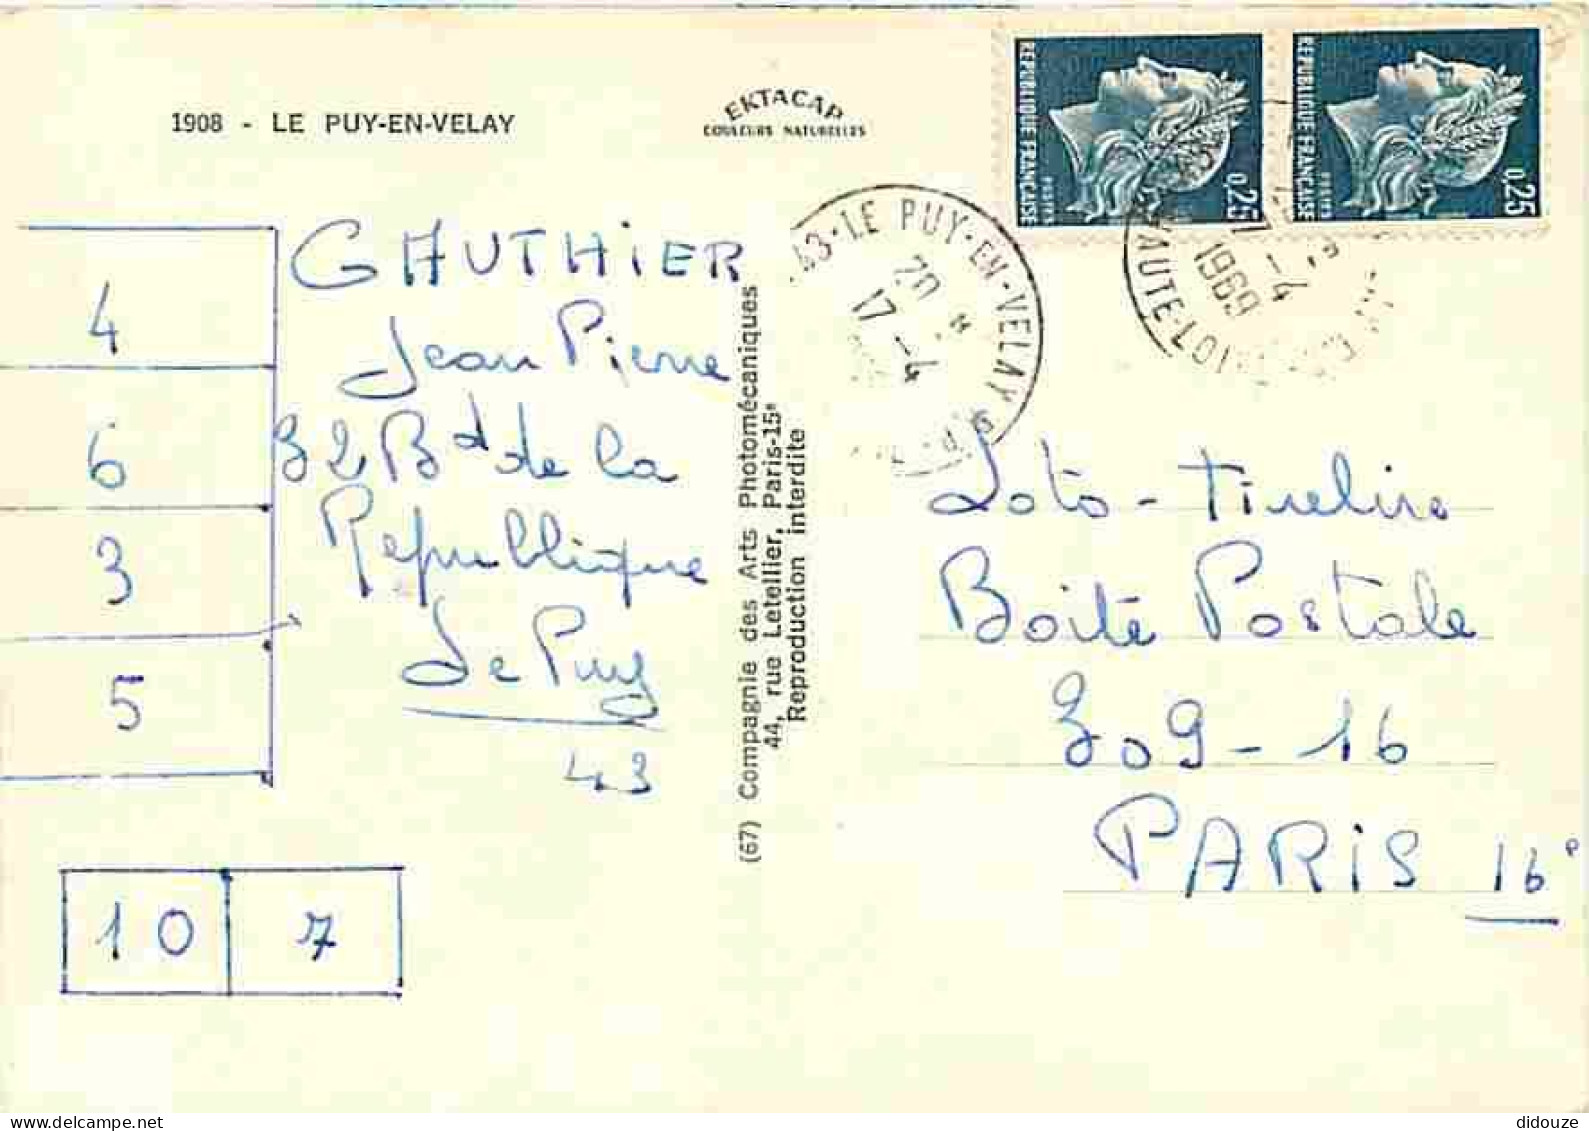 1908 - LE PUY-EN-VELAY
EKTACAP
COULEURS NATURELLES
REPUBLIQUE FRANÇAISE
POSTES
0,25
REPUBLIQUE FRANÇAISE
POSTES
0,25
43 - LE PUY-EN-VELAY
20 H
17 - 4
HAUTE-LOIRE
17 - 4
1969
4
6
3
5
GAUTHIER
Jean Pierre
32 Bd de la
République
Le Puy
43
10 7
(67) Compagnie des Arts Photomécaniques
44, rue Letellier, Paris-15e
Reproduction interdite
Loto - Tirelire
Boîte Postale
309 - 16
PARIS 16e
delcampe.net
didouze